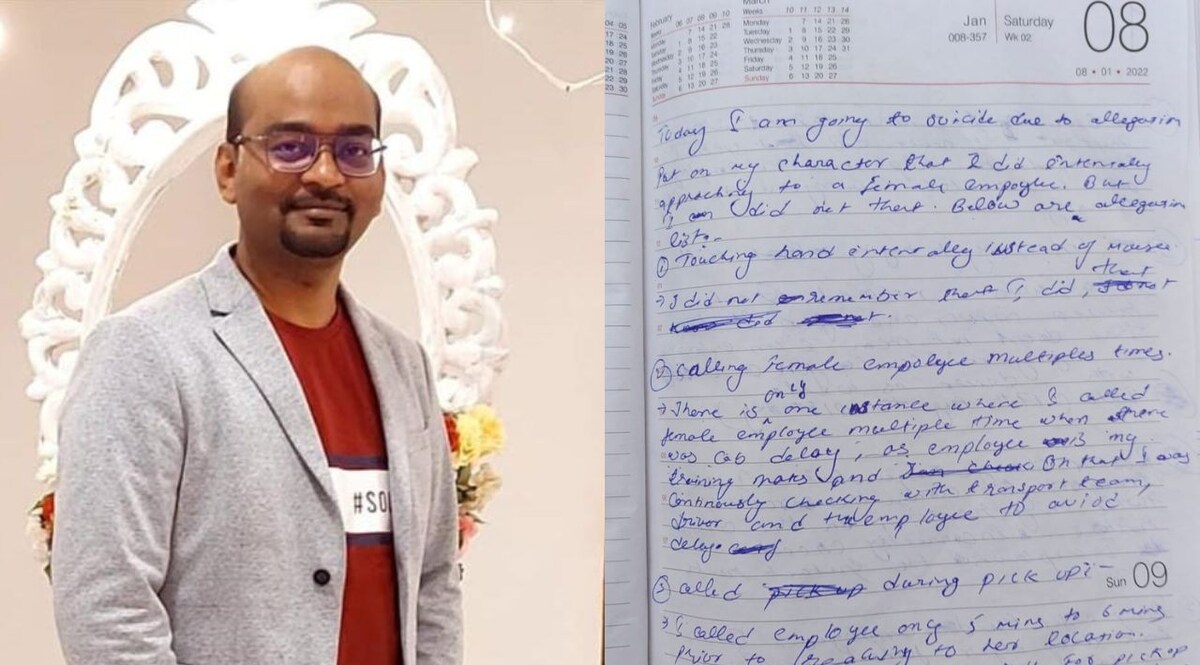 #SOU
February
March
Weeks 10 11 12 13 14
Monday 7 14 21 28
Tuesday 1 8 15 22 29
Wednesday 2 9 16 23 30
Thursday 3 10 17 24 31
Friday 4 11 18 25
Saturday 5 12 19 26
Sunday 6 13 20 27
Jan
008-357
Saturday
Wk 02
08
08 • 01 • 2022
Today I am going to suicide due to allegation
Put on my character that I did intenally
approching to a female empolyee. But
I did not that. Below are allegation
list:-
① Touching hand intenally instead of mouse.
→ I did not remember that I did, that
② Calling female empolyee multiples times.
→ There is only one instance where I called
female employee multiple time when there
was cab delay, as employee is my
training mates and On that I was
Continously checking with transport team,
driver and the employee to aviod
delay.
③ Called during pick up:-
Sun 09
→ I called employee only 5 mins to 6 mins
prior to reaching to her location.
pickup